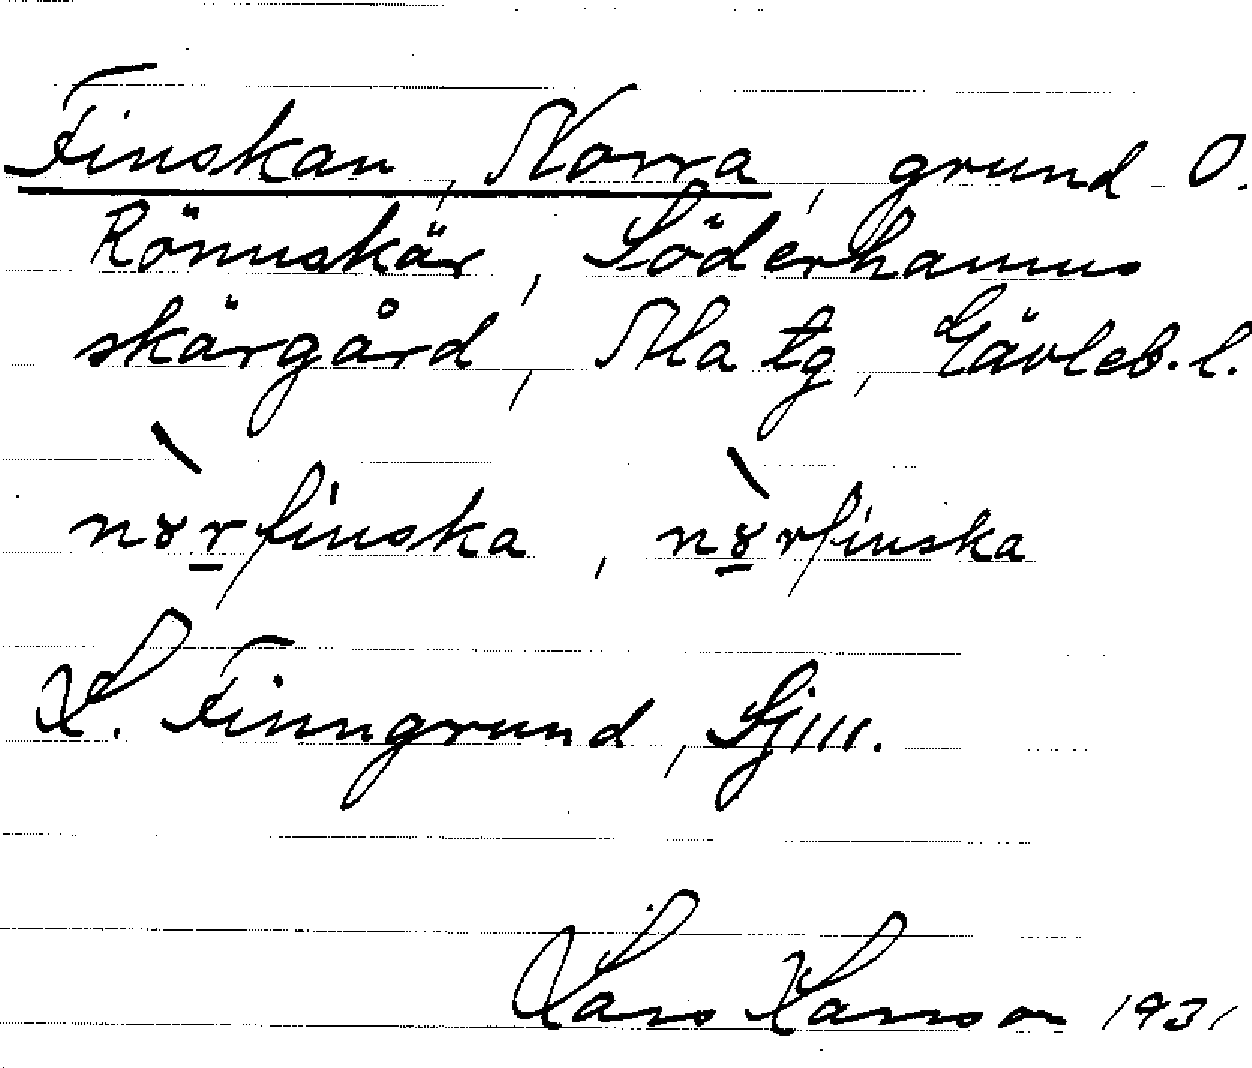 Finskan, Norra, grund O.
Rönnskär, Söderhamns
skärgård, Ala tg, Gävleb. l.
nɤrfinska, nɤrfinska
L. Finngrund, Sj 111.
Lars Larsson 1931